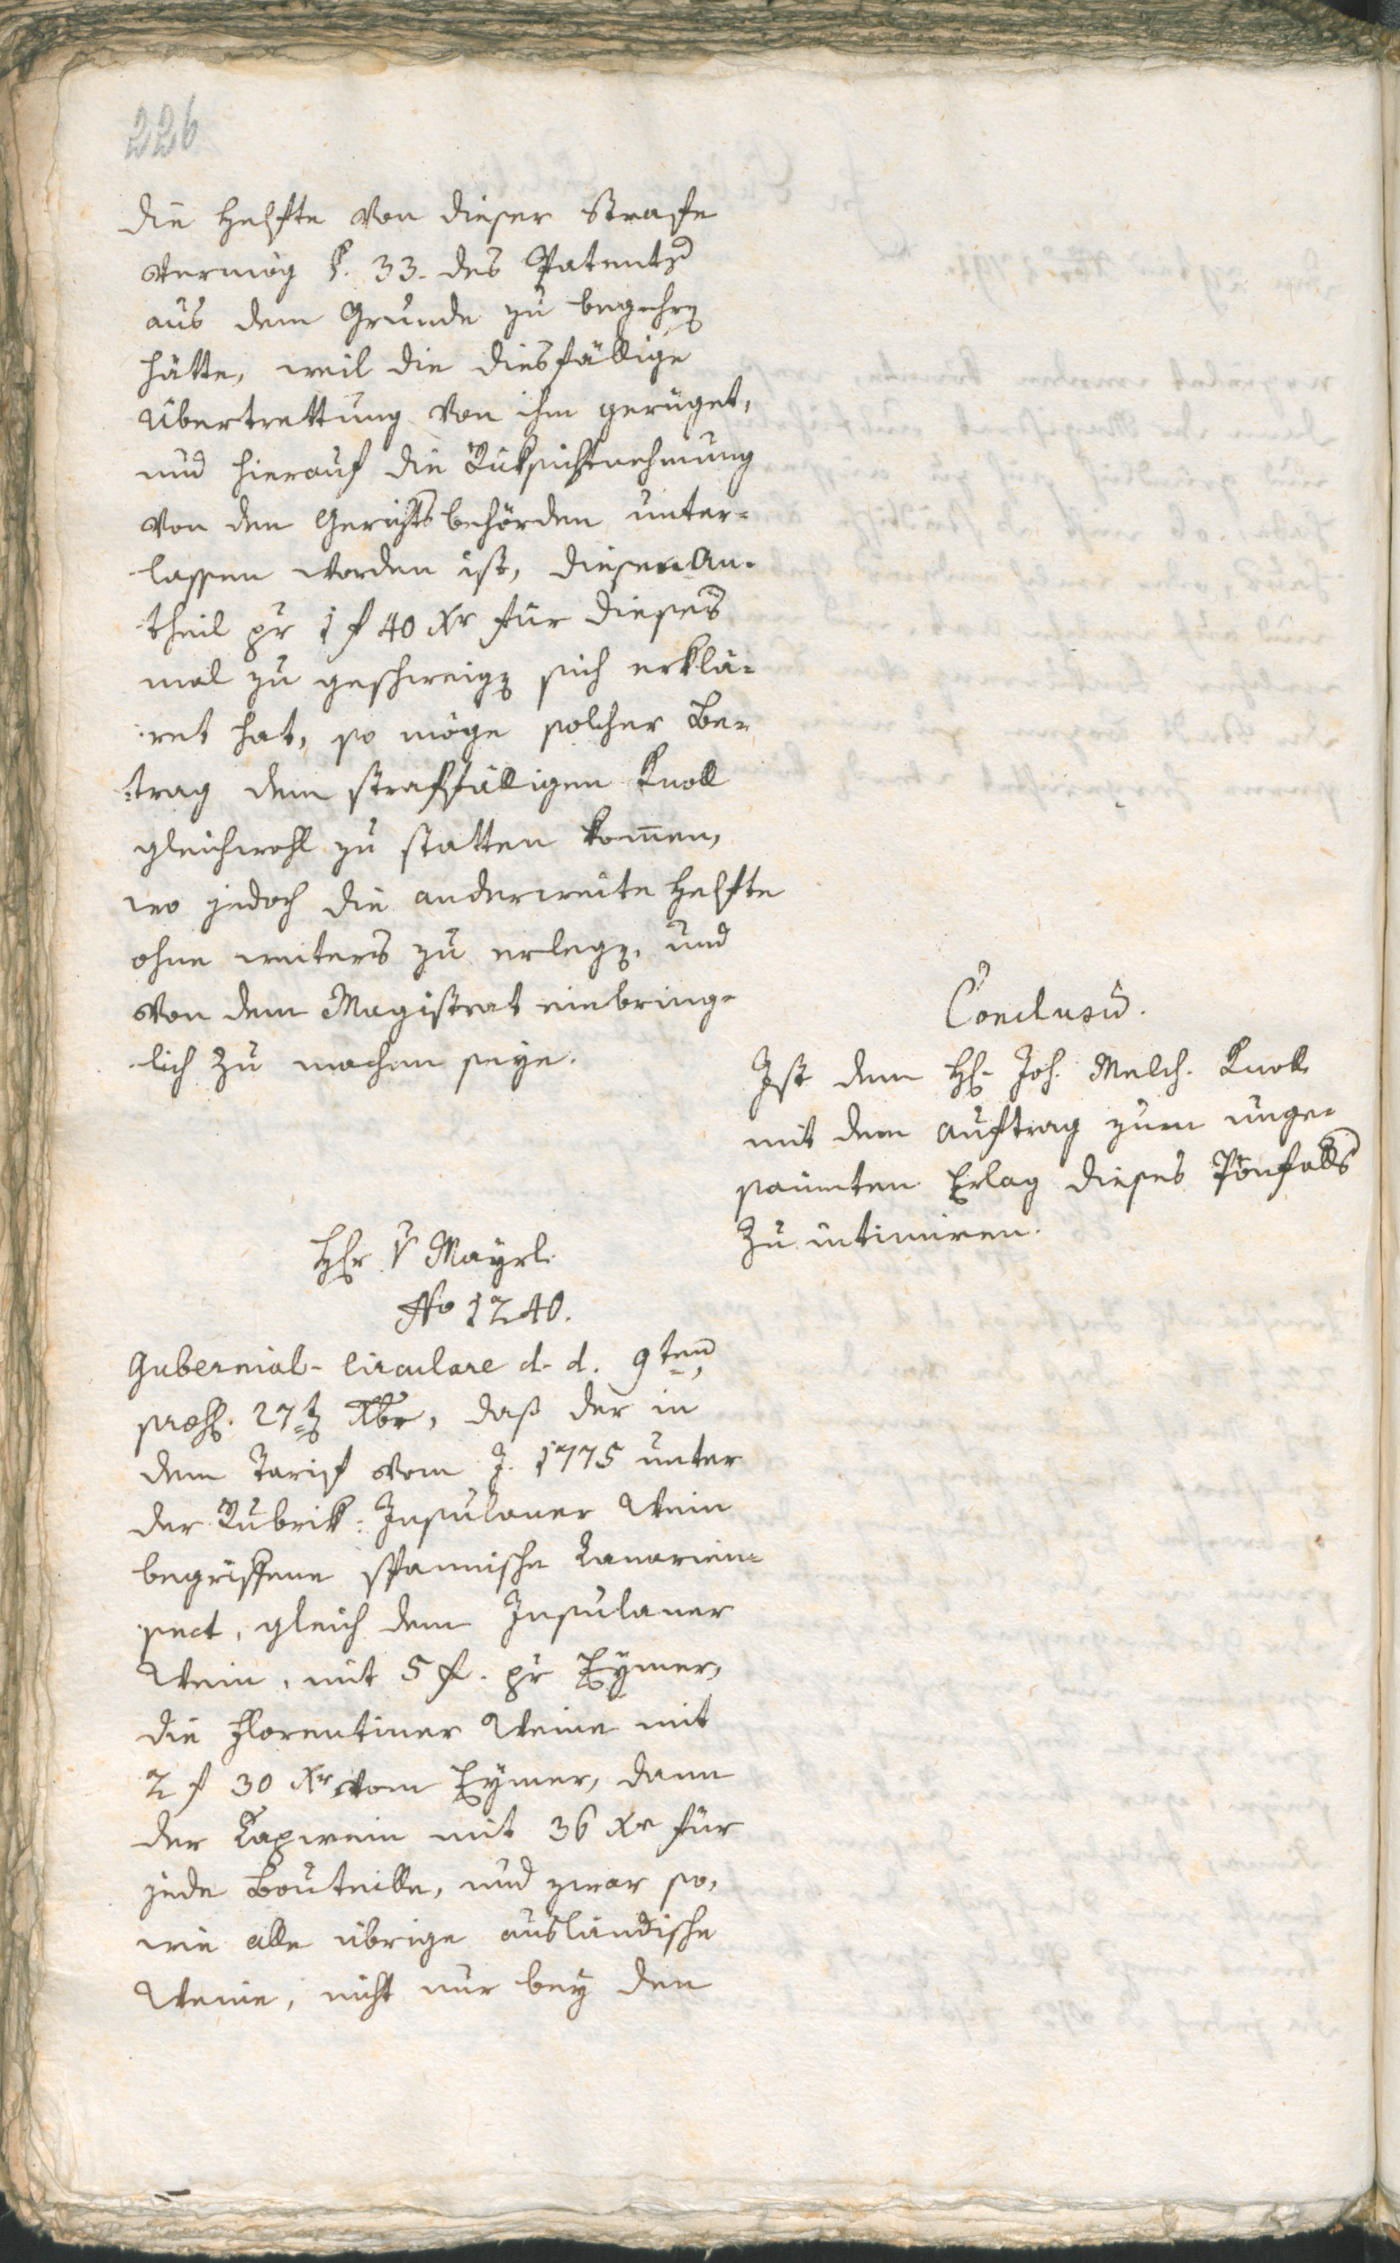 226
die Helfte von dieser Strafe
vermög §. 33. des Patents
aus dem Grunde zu begehren
hätte, weil die diesfällige
Übertrettung von ihm gerüget,
und hierauf die Rüksichtnehmung
von den Gerichtsbehörden unter-
lassen worden ist, diesen An-
theil pr 1 f 40 Xr für dieses
mal zu geschweigen sich erklä-
ret hat, so möge solcher Be-
trag dem straffälligen Knoll
gleichwohl zu statten kom̅en,
wo jedoch die anderweite Helfte
ohne weiters zu erlegen, und
von dem Magistrat einbring-
lich zu machen seye.
Conclusū.
Ist dem H. Joh. Melch. Knoll
mit dem Auftrag zum unge-
saumten Erlag dieses Pönfalls
zu intimiren.
Hr. v Mayrl.
No 1240.
Gubernial-Circulare d. d. 9ten,
praes. 27ten Xbr, daß der in
dem Tariff vom J. 1775 unter
der Rubrik: Insulaner Wein
begriffene spannische Kanarien-
sect, gleich dem Insulaner
Wein, mit 5 f. pr Eymer,
die Florentiner Weine mit
2 f 30 Xr vom Eymer, dann
der Kapwein mit 36 Xr für
jede Bouteille, und zwar so,
wie alle übrige ausländische
Weine, nicht nur bey den